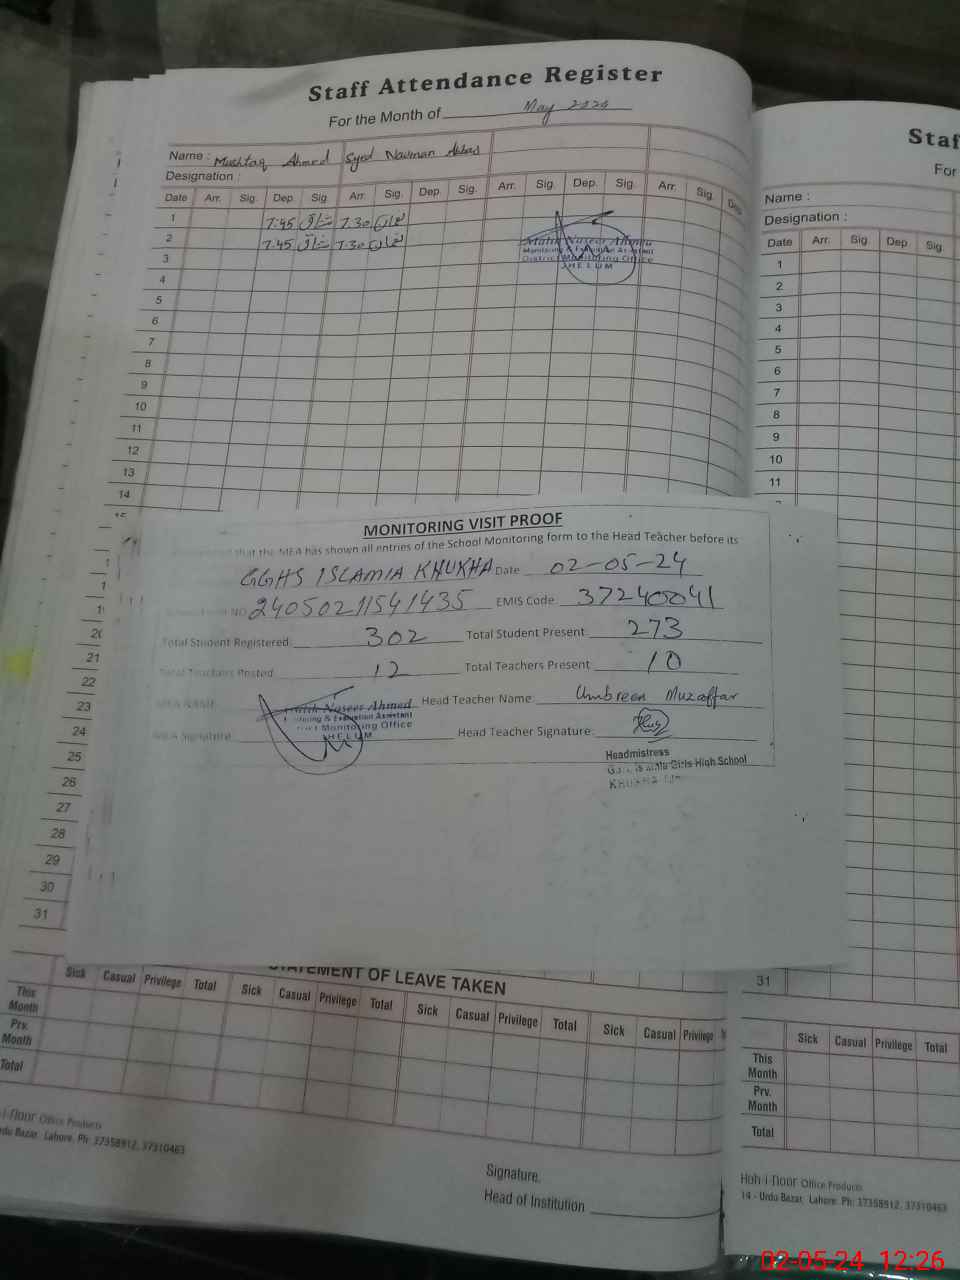 Staff Attendance Register
For the Month of May 2024
Name : Mushtaq Ahmed Syed Nauman Abbas
Designation :
Date Arr. Sig. Dep. Sig. Arr. Sig. Dep. Sig. Arr. Sig. Dep. Sig. Arr. Sig. Dep
1 7:45 مشتاق 7.30 نعمان
2 7:45 مشتاق 7.30 نعمان
Malik Naseer Ahmed
Monitoring & Evaluation Assistant
District Monitoring Office
JHELUM
3
4
5
6
7
8
9
10
11
12
13
14
15
MONITORING VISIT PROOF
that the MEA has shown all entries of the School Monitoring form to the Head Teacher before its
GGHS ISLAMIA KHUKHA Date 02-05-24
NO 24050211541435 EMIS Code: 37240041
Total Student Registered: 302 Total Student Present: 273
Total Teachers Posted 12 Total Teachers Present: 10
MEA NAME Malik Naseer Ahmed Head Teacher Name: Umbreen Muzaffar
Monitoring & Evaluation Assistant
District Monitoring Office
JHELUM
MEA Signature Head Teacher Signature:
Headmistress
Govt. Islamia Girls High School
KHUKHA
20
21
22
23
24
25
26
27
28
29
30
31
STATEMENT OF LEAVE TAKEN
Sick Casual Privilege Total Sick Casual Privilege Total Sick Casual Privilege Total Sick Casual Privilege
This Month
Prv. Month
Total
h-i-noor Office Products
Urdu Bazar, Lahore. Ph: 37358912, 37310463
Signature.
Head of Institution
Staf
For
Name :
Designation :
Date Arr. Sig. Dep. Sig.
1
2
3
4
5
6
7
8
9
10
11
31
Sick Casual Privilege Total
This Month
Prv. Month
Total
Hoh-i-noor Office Products
14 - Urdu Bazar, Lahore. Ph: 37358912, 37310463
02-05-24 12:26